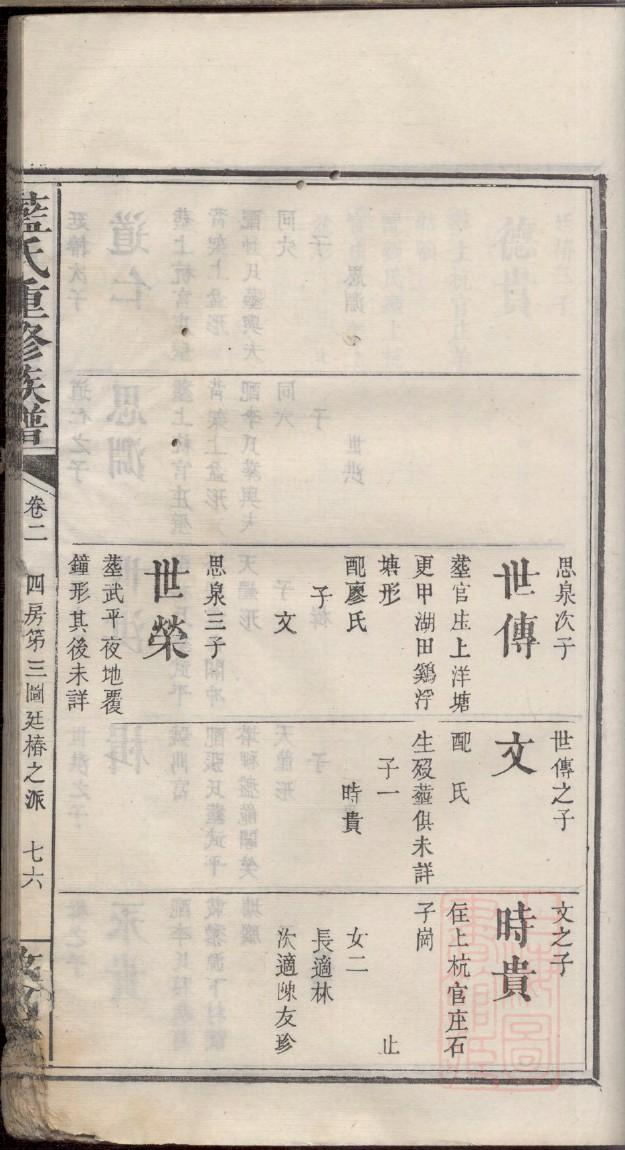 藍氏重修族譜
卷二 四房第三圖廷椿之派 七六
思泉次子
世傳
塟官庄上洋塘
更甲湖田鷄浮
塘形
配廖氏
子
文
思泉三子
世榮
塟武平夜地覆
鐘形其後未詳
世傳之子
文
配 氏
生歿塟俱未詳
子一
時貴
文之子
時貴
住上杭官庄石
子崗
止
女二
長適林
次適陳友珍